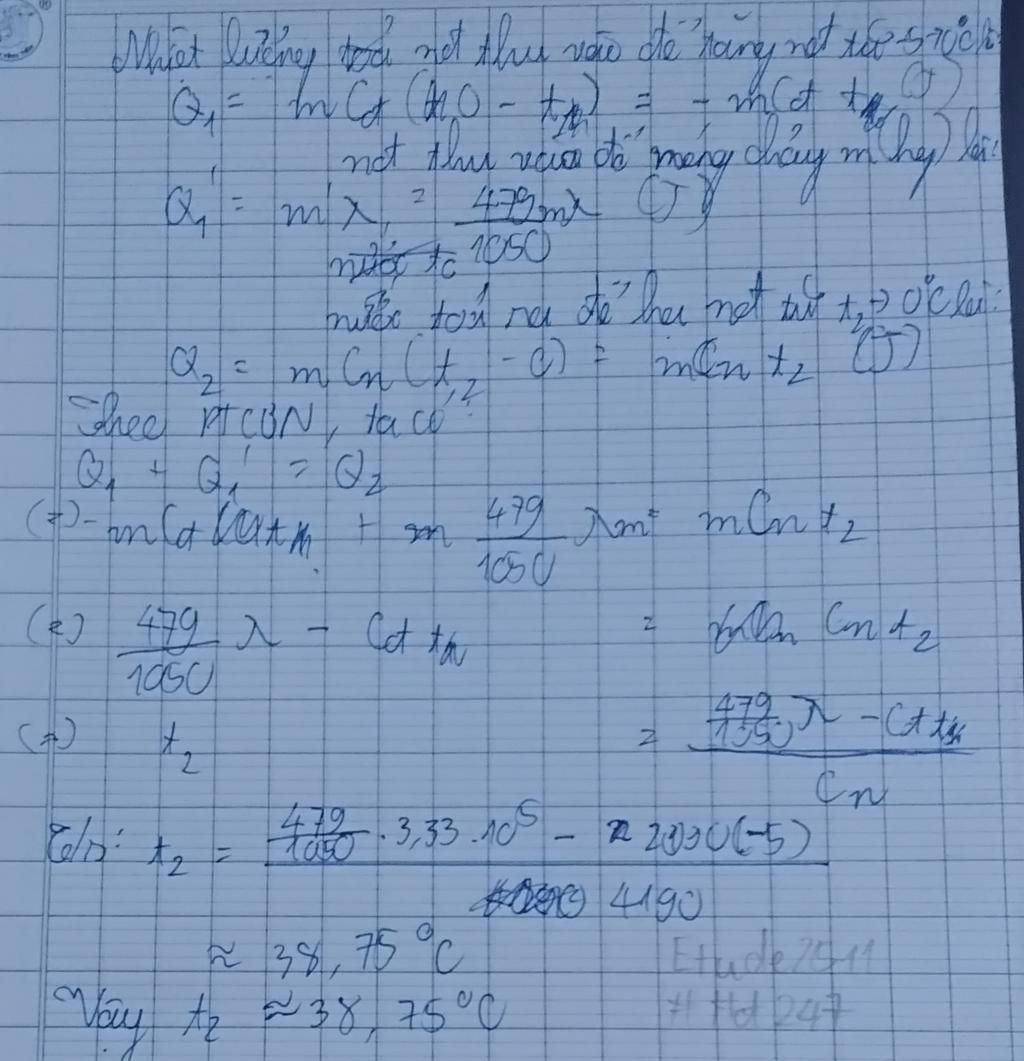 Nhiệt lượng nđ thu vào để tăng nđ từ -5→0°C là:
Q₁ = mCđ (0 - t₁) = - mCđ t₁ (J)
nđ thu vào để nóng chảy m'(kg) là:
Q₁' = m'λ = 479mλ/1050 (J)
nước toả ra để hạ nđ từ t₂→0°C là:
Q₂ = mCn(t₂ - 0) = mCn t₂ (J)
Theo PTCBN, ta có:
Q₁ + Q₁' = Q₂
(=) - mCđ t₁ + 479/1050 λm = mCn t₂
(=) 479/1050 λ - Cđ t₁ = Cn t₂
(=) t₂ = (479/1050 λ - Cđ t₁)/Cn
t₂ = (479/1050 . 3,33 . 10⁵ - 2090(-5))/4190
≈ 38,75 °C
Etude2511
Vậy t₂ ≈ 38,75 °C
# Hd 247